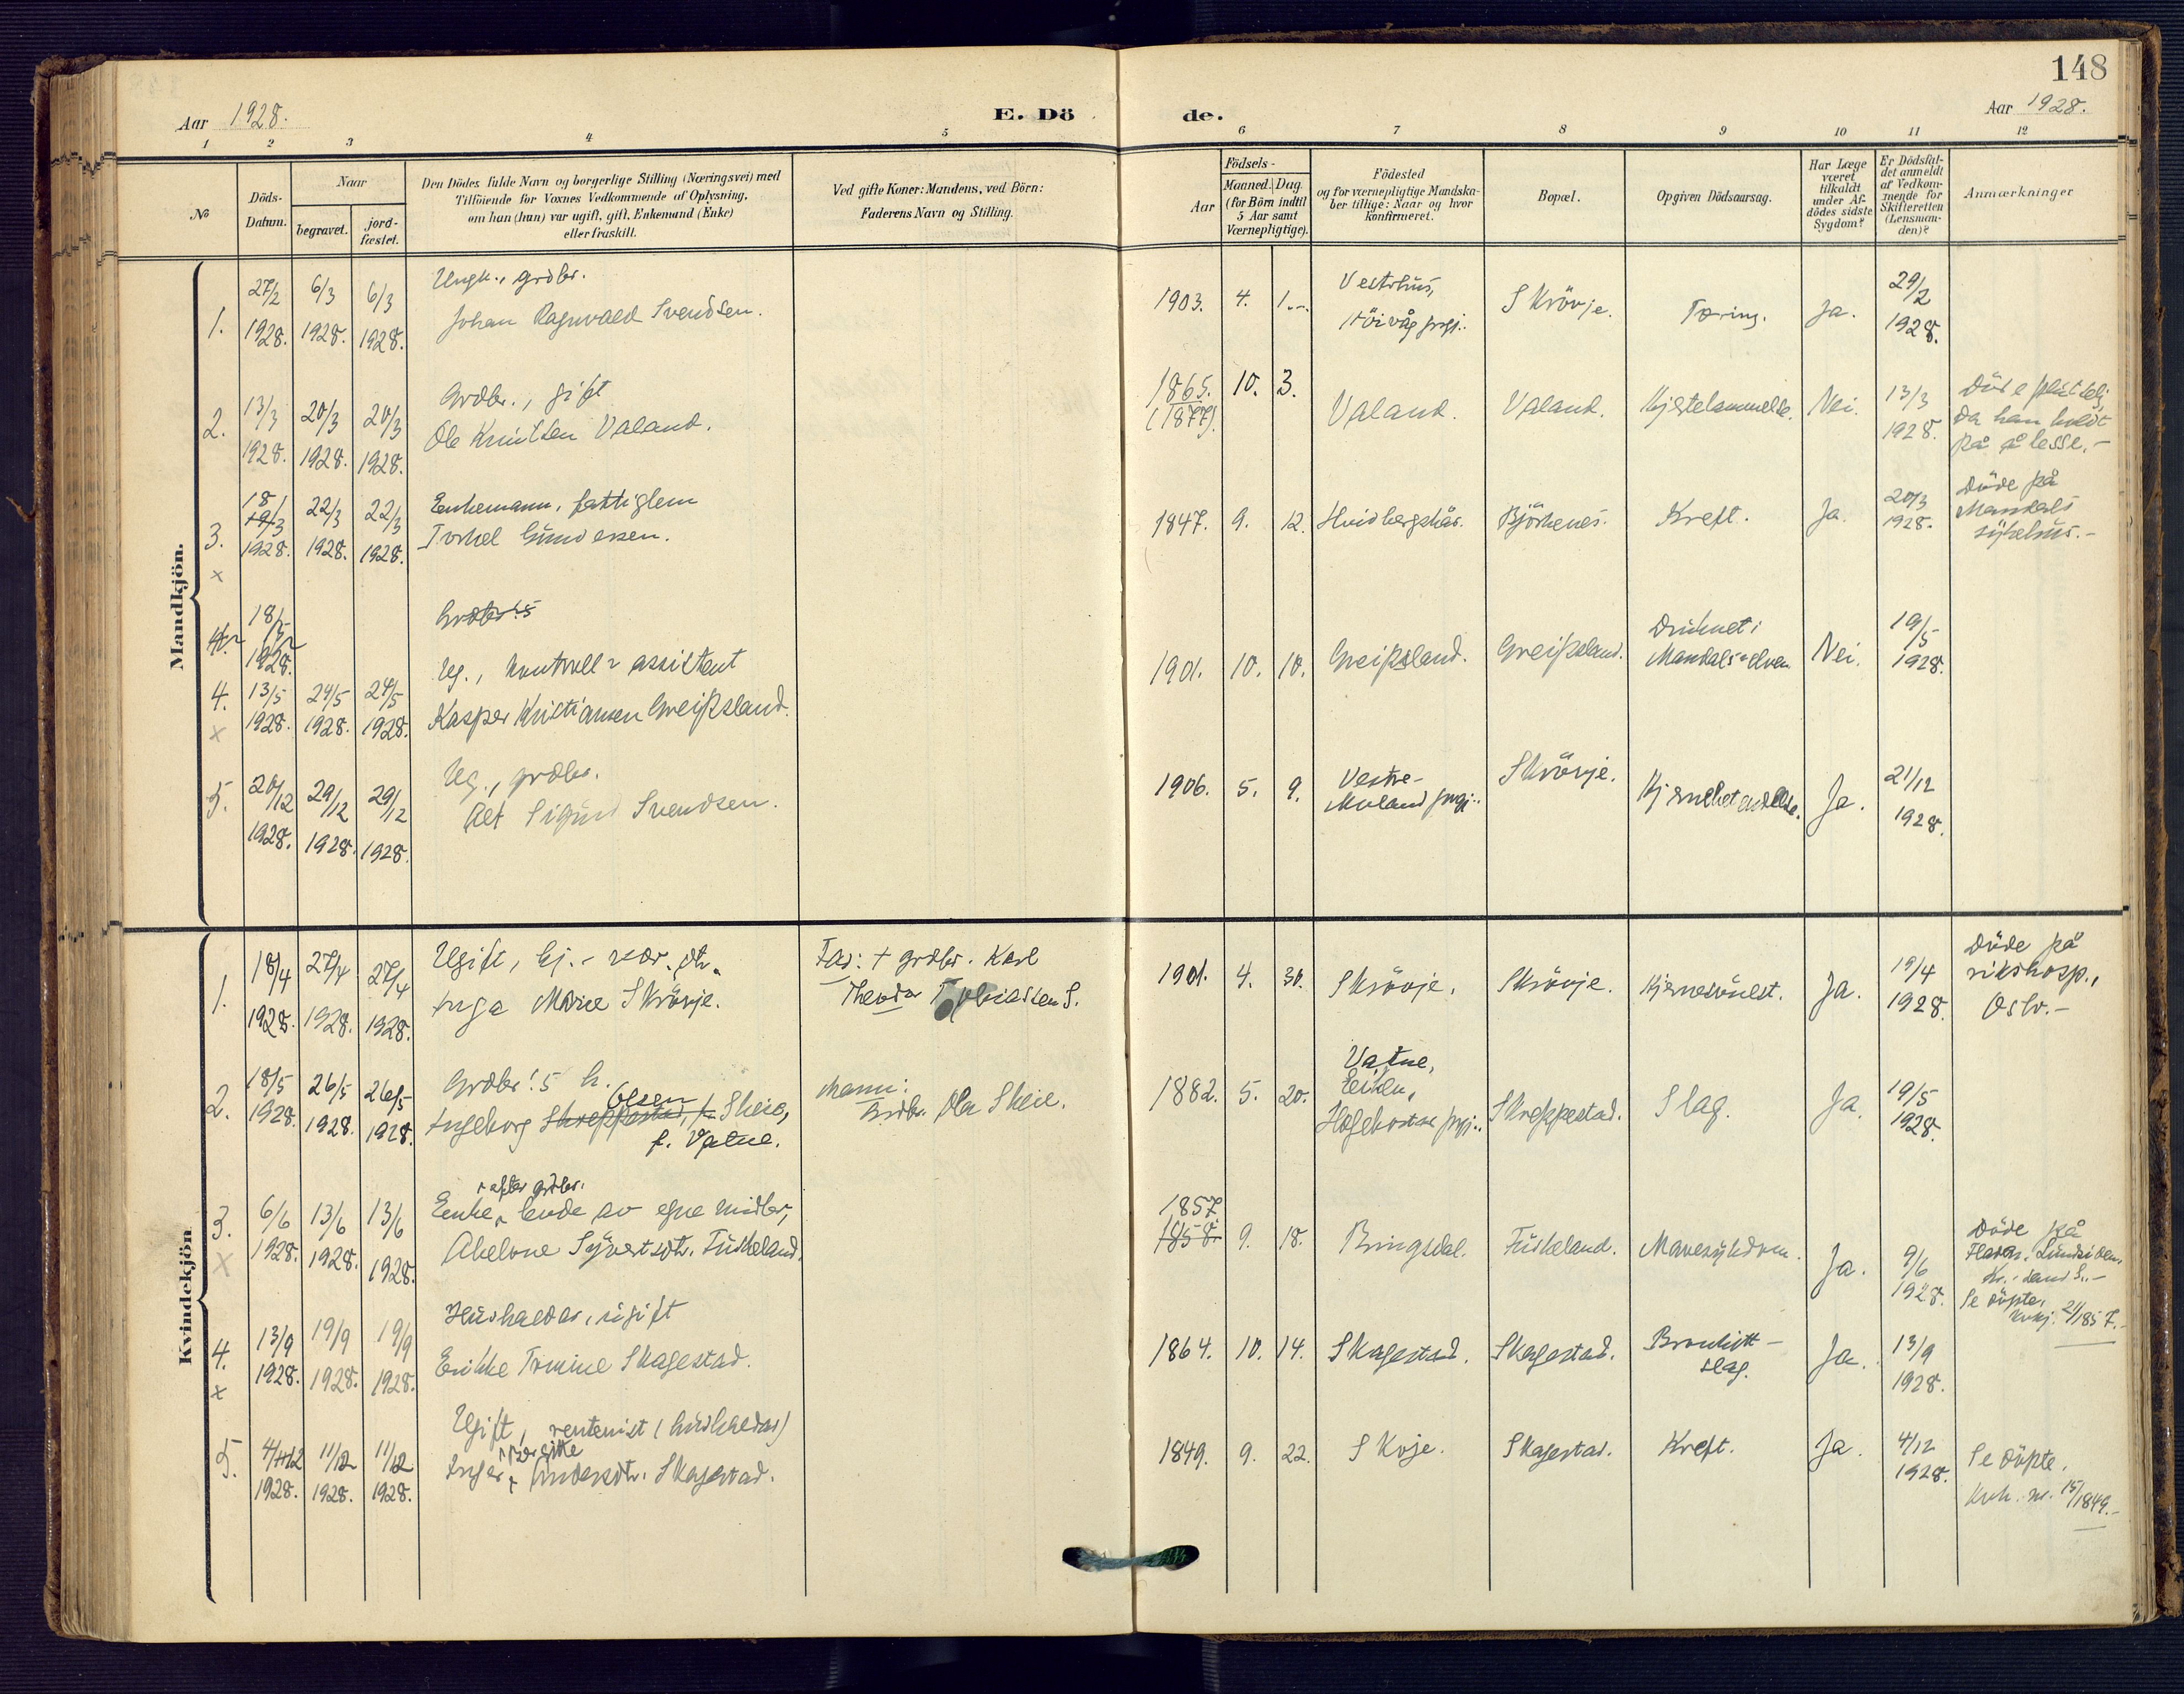 148
Aar 1928.
E. Dö
de.
Aar 1928.
1 2 3 4 5 6 7 8 9 10 11 12
№
Döds-
Datum.
Naar
begravet.
jord-
fæstet.
Den Dödes fulde Navn og borgerlige Stilling (Næringsvei) med
Tilföiende for Voxnes Vedkommende af Oplysning,
om han (hun) var ugift, gift, Enkemand (Enke)
eller fraskilt.
Ved gifte Koner: Mandens, ved Börn:
Faderens Navn og Stilling.
Födsels-
Aar
Maaned. Dag.
(for Börn indtil
5 Aar samt
Værnepligtige).
Födested
og for værnepligtige Mandska-
ber tillige: Naar og hvor
konfirmeret.
Bopæl.
Opgiven Dödsaarsag.
Har Læge
været
tilkaldt
under Af-
dödes sidste
Sygdom?
Er Dödsfal-
det anmeldt
af Vedkom-
mende for
Skifteretten
(Lensman-
den)?
Anmærkninger
Mandkjön.
1. 27/2 1928. 6/3 1928. 6/3 1928.
Ungk., grdbr.
Johan Ragnvald Svendsen.
1903. 4. 1.
Vestrhus,
Höivåg prgj.
Skrövje. Tæring. Ja. 29/2 1928.
2. 13/3 1928. 20/3 1928. 20/3 1928.
Grdbr., gift
Ole Knutsen Valand.
1865. (1877). 10. 3.
Valand. Valand. Hjertelammelse. Nei. 13/3 1928.
Døde plutselig
da han holdt
på å lesse.-
3. x 18/3 1928. 22/3 1928. 22/3 1928.
Enkemann, fattiglem
Torkel Gundersen.
1847. 9. 12. Hvidbergskår. Björkenes. Kreft. Ja. 20/3 1928.
Døde på
Mandals
sykehus.-
18/5 1928.
Grdbr's
4. x 13/5 1928. 24/5 1928. 24/5 1928.
Ug., kontroll-assistent
Kasper Kristiansen Greipsland.
1901. 10. 10. Greipsland. Greipsland.
Druknet i
Mandals-elven
Nei. 19/5 1928.
5. 20/12 1928. 29/12 1928. 29/12 1928.
Ug., grdbr.
Alf Sigurd Svendsen.
1906. 5. 9.
Vestre-
Moland prgj.
Skrövje. Hjernebetendelse. Ja. 21/12 1928.
Kvindekjön
1. 18/4 1928. 27/4 1928. 27/4 1928.
Ugift, hj.-vær. dtr.
Inga Marie Skrövje.
Far: + grdbr. Karl
Theodor Tobiassen S.
1901. 4. 30. Skrövje. Skrövje. Hjernesvulst. Ja. 19/4 1928.
Døde på
rikshosp.,
Oslo.-
2. 18/5 1928. 26/5 1928. 26/5 1928.
Grdbr's h.
Olsen
Ingeborg Skreppestad, f. Skeie,
f. Vatne.
Mann:
Grdbr. Ola Skeie.
1882. 5. 20.
Vatne,
Eiken,
Hægebostad prgj.
Skreppestad. Slag. Ja. 19/5 1928.
3. x 6/6 1928. 13/6 1928. 13/6 1928.
efter grdbr.
Enke, levde av egne midler,
Abelone Syvertsdtr. Fuskeland.
1857 1858. 9. 18. Bringsdal. Fuskeland. Mavesykdom. Ja. 9/6 1928.
Døde på
Lundsiden,
Kr.-sand S.-
Se döpte,
kvkj. 21/1857.-
4. x 13/9 1928. 19/9 1928. 19/9 1928.
Husholder, ugift
Enikke Tomine Skagestad.
1864. 10. 14. Skagestad. Skagestad.
Bronkitt-
slag.
Ja. 13/9 1928.
5. 4/12 1928. 11/12 1928. 11/12 1928.
Ugift, rentenist (husholder)
Birgitte
Inger Andersdtr. Skagestad.
1849. 9. 22. Skoje. Skagestad. Kreft. Ja. 4/12 1928.
Se döpte.
Kvk. nr. 15/1849.-